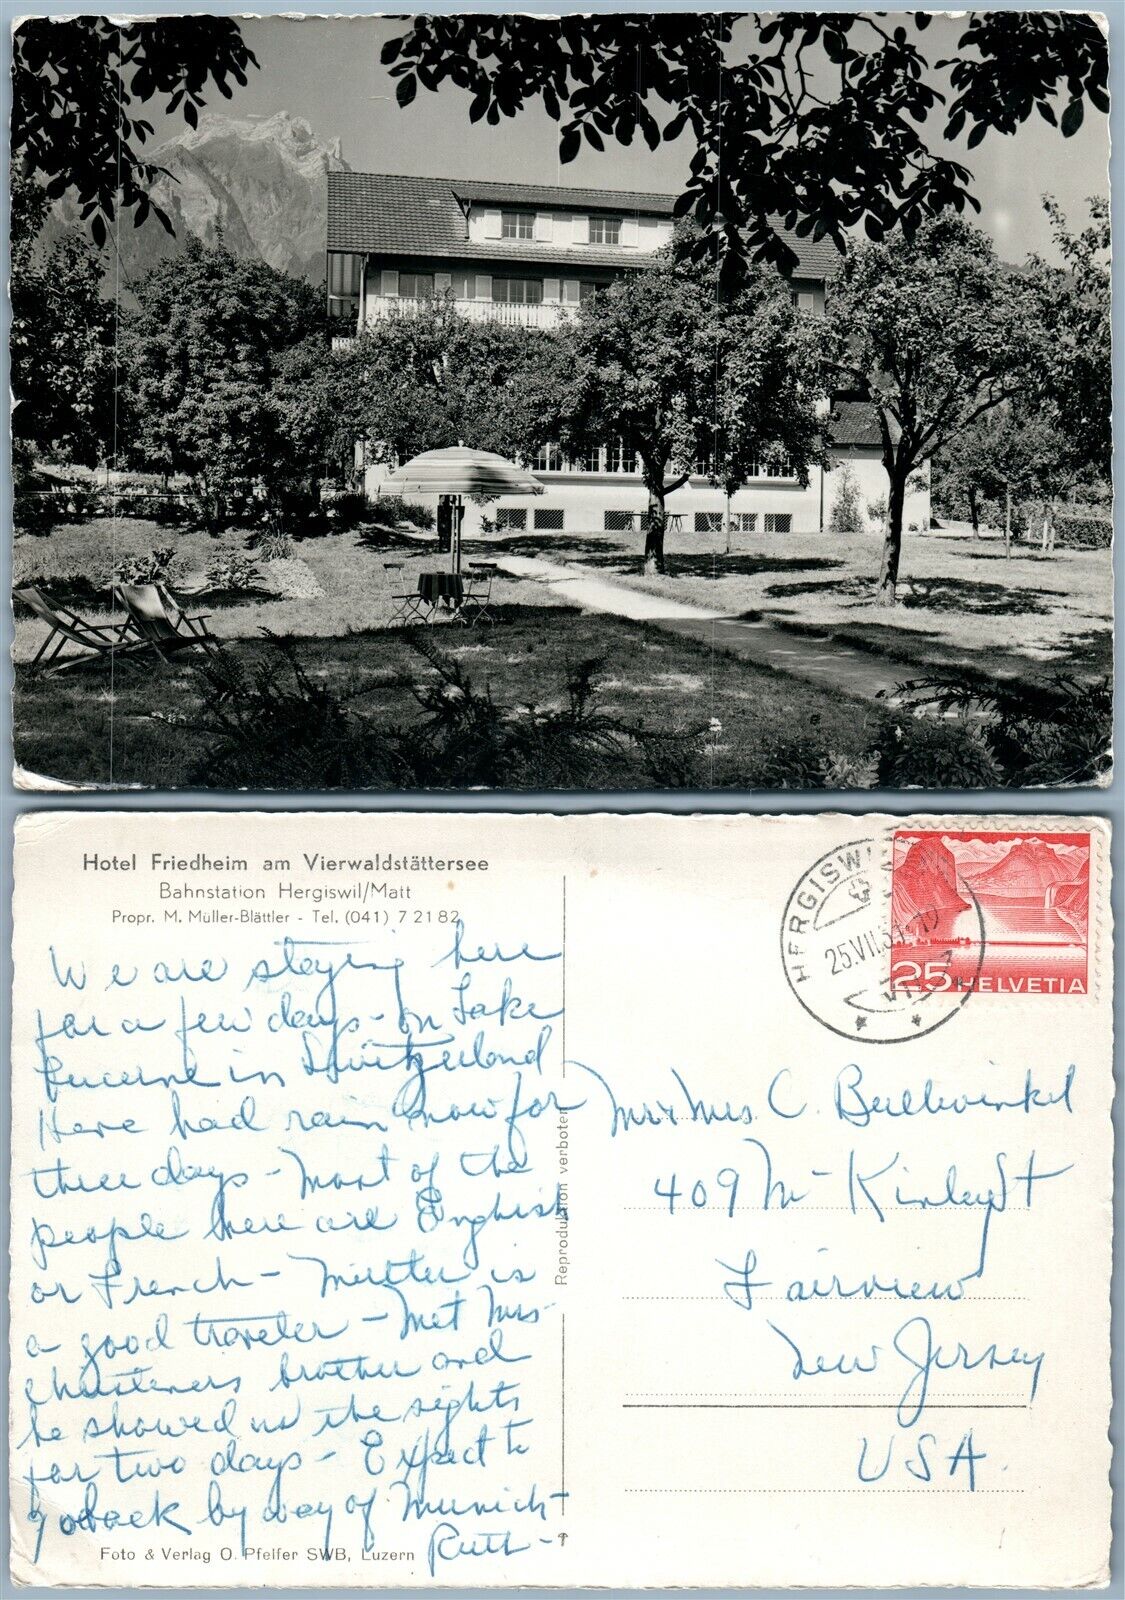 Hotel Friedheim am Vierwaldstättersee
Bahnstation Hergiswil/Matt
Propr. M. Müller-Blättler - Tel. (041) 7 21 82
We are staying here
for a few days - on Lake
Lucerne in Switzerland
Have had rain now for
three days - Most of the
people here are English
or French - Mutter is
a good traveler - Met Mrs
brother and
he showed us the sights
for two days - Expect to
go back by way of Munich -
Ruth -
Foto & Verlag O. Pfeifer SWB, Luzern
Reproduktion verboten
HERGISWIL
25.VII.5
25 HELVETIA
Mr & Mrs C. Bullwinkel
409 McKinley St
Fairview
New Jersey
USA.